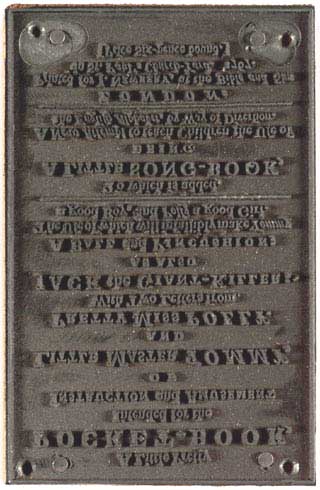 A Little Pretty
POCKET-BOOK
Intended for the
INSTRUCTION and AMUSEMENT
OF
LITTLE MASTER TOMMY,
AND
PRETTY MISS POLLY.
With Two Letters from
JACK the GIANT-KILLER;
AS ALSO
A BALL and PINCUSHION;
The Use of which will infallibly make Tommy
a good Boy, and Polly a good Girl.
To which is added,
A LITTLE SONG-BOOK,
BEING
A New Attempt to teach Children the Use of
the English Alphabet, by Way of Diversion.
LONDON:
Printed for J. NEWBERY, at the Bible and Sun
in St. Paul's Church-Yard. 1767.
[Price Six-pence bound.]